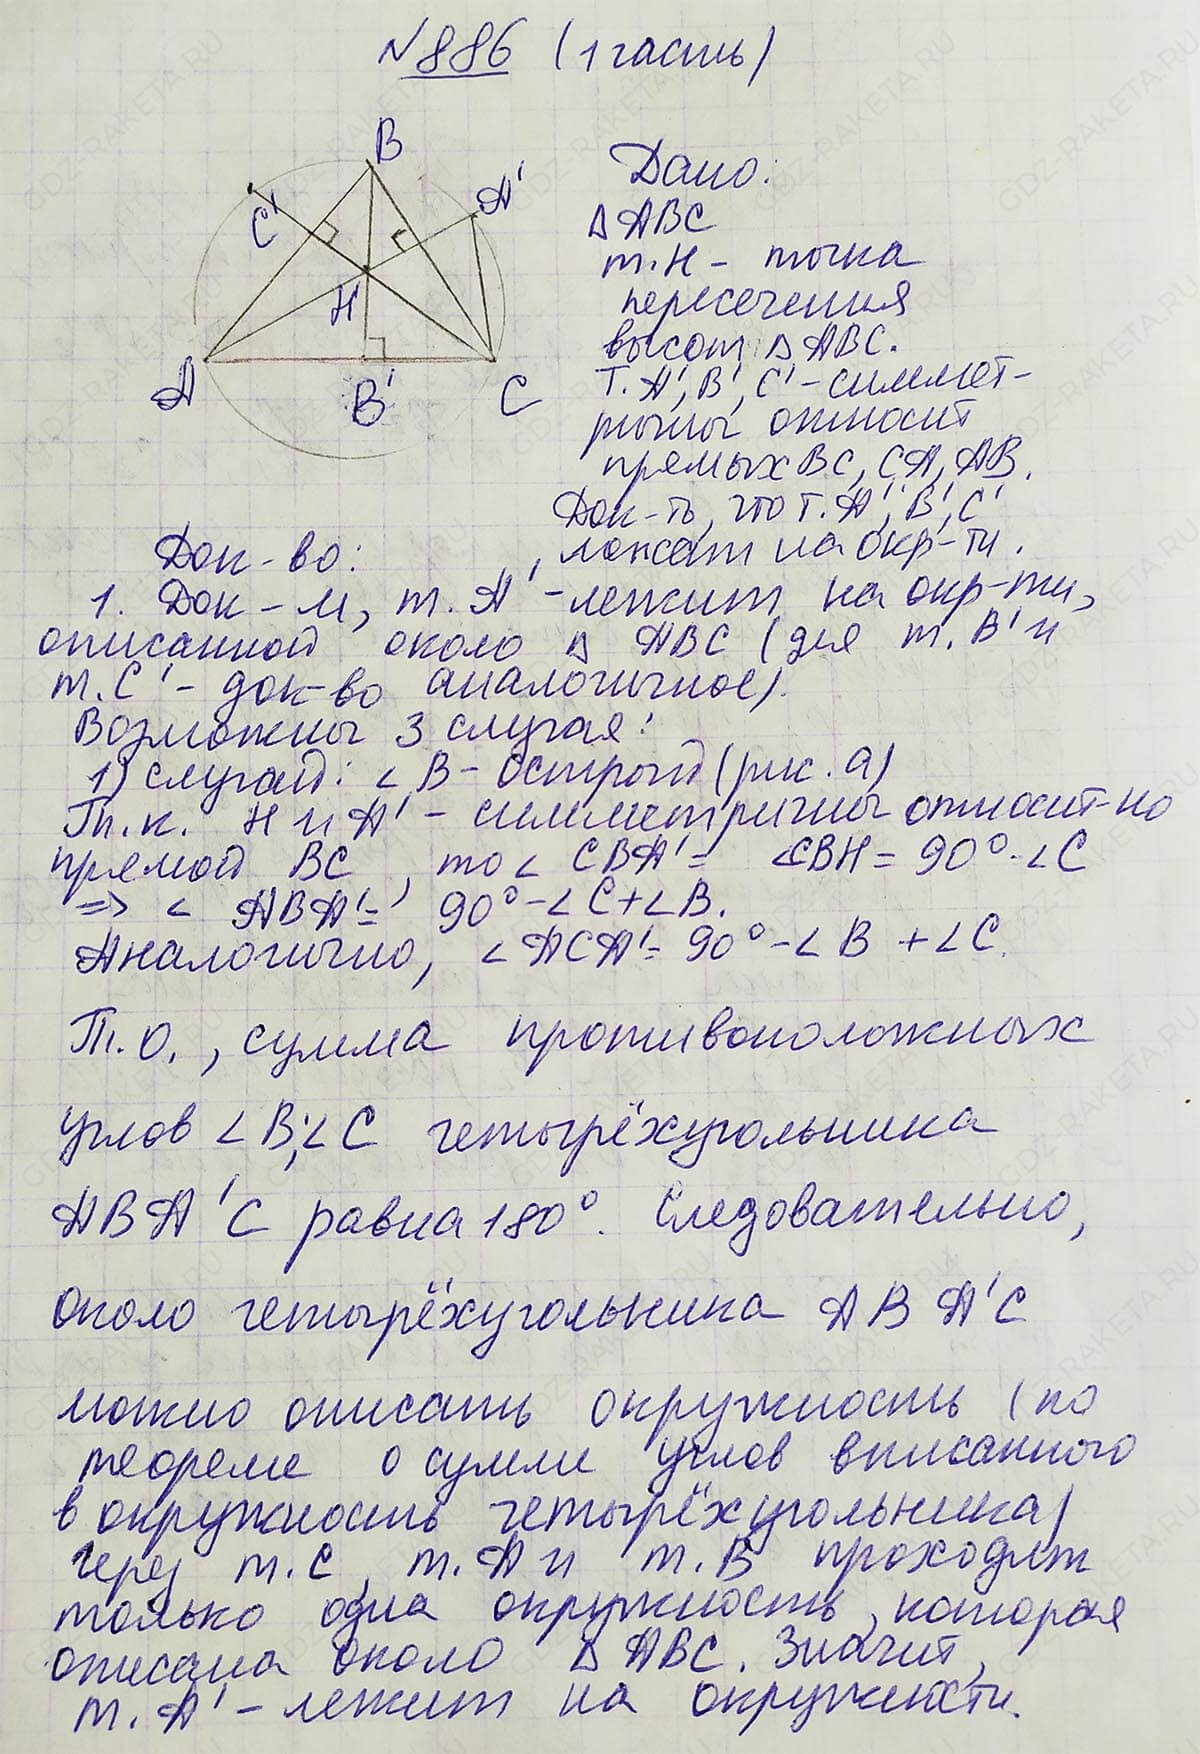 №886 (1 часть)
B
A'
C'
H
A
B'
C
Дано:
∆ ABC
т.H - точка
пересечения
высот ∆ ABC.
Т. A', B', C' - симмет-
ричны относит
прямых BC, CA, AB.
Док-ть, что т. A', B', C'
лежат на окр-ти.
Док-во:
1. Док-м, т. A' - лежит на окр-ти,
описанной около ∆ ABC (для т. B' и
т. C' - док-во аналогичное).
Возможны 3 случая:
1) случай: ∠B - острый (рис. а)
Т.к. H и A' - симметричны относит-но
прямой BC, то ∠ CBA' = ∠CBH = 90° - ∠C
=> ∠ ABA' = 90° - ∠C + ∠B.
Аналогично, ∠ACA' = 90° - ∠B + ∠C.
Т.о., сумма противоположных
углов ∠B; ∠C четырёхугольника
ABA'C равна 180°. Следовательно,
около четырёхугольника ABA'C
можно описать окружность (по
теореме о сумме углов вписанного
в окружность четырёхугольника)
Через т.C, т.A и т.B проходит
только одна окружность, которая
описана около ∆ ABC. Значит,
т. A' - лежит на окружности.
GDZ-RAKETA.RU